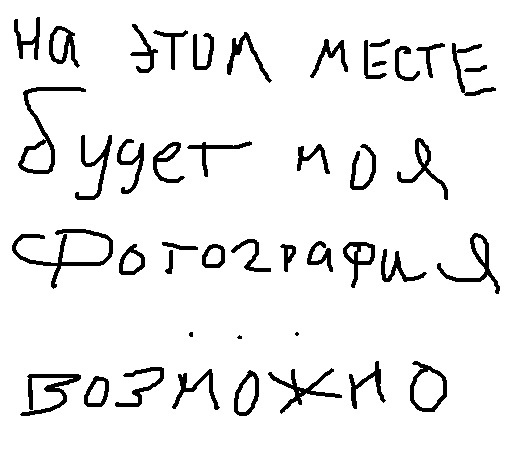 на этом месте
будет моя
фотография
. . .
возможно